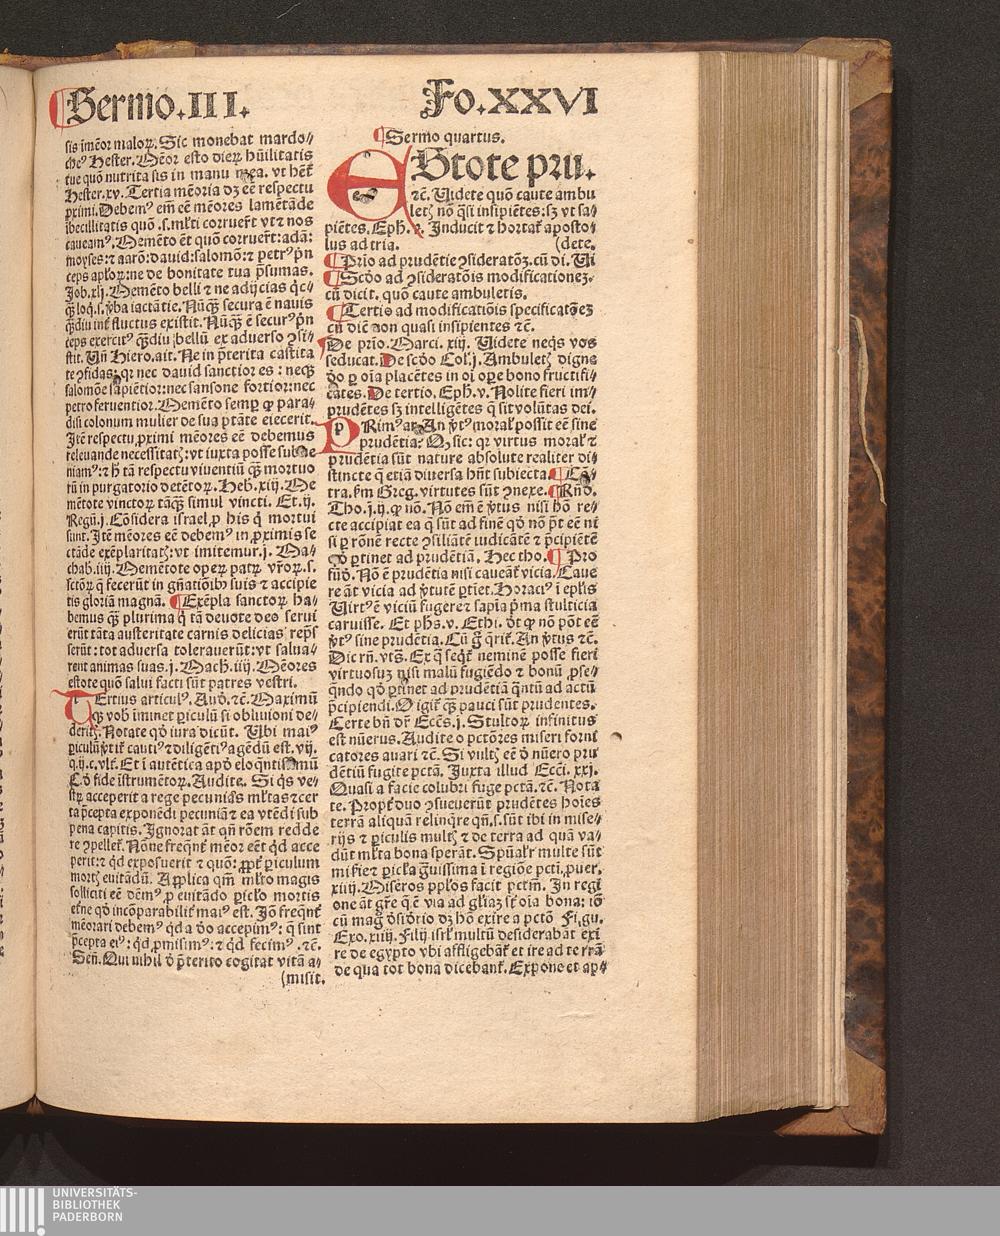 ¶Sermo.III.
Fo.XXVI
sis imẽor maloꝝ. Sic monebat mardo⸗
cheꝰ Hester. Mẽor esto dieꝝ hũilitatis
tue quõ nutrita sis in manu mea. vt hẽt̃
Hester.xv. Tertia mẽoria dꝫ eẽ respectu
ꝓximi. Debemꝰ em̃ eẽ mẽores lamẽtãde
ibecillitatis quõ .s. ml̃ti corruer̃t vt ⁊ nos
caueamꝰ. Memẽto ẽt quõ corruer̃t: adã:
moyses: ⁊ aarõ: dauid: salomõ: ⁊ petrꝰ p̃n
ceps apl̃oꝝ: ne de bonitate tua p̃sumas.
Job.xlj. Memẽto belli ⁊ ne adijcias q̃c⸗
qꝫ loq̃.s. v̾ba iactãtie. Nũqꝫ secura ẽ nauis
qꝫdiu int̾ fluctus existit. Nũqꝫ ẽ securꝰ p̃n
ceps exercitꝰ qꝫdiu bellũ ex aduerso ꝯsi⸗
stit. Uñ Hiero.ait. Ne in p̃terita castita
te ꝯfidas: qr nec dauid sanctior es: neqꝫ
salomõe sapiẽtior: nec sansone fortior: nec
petro feruentior. Memẽto semꝑ ꝙ para⸗
disi colonum mulier de sua ptãte eiecerit.
Itẽ respectu ꝓximi mẽores eẽ debemus
releuande necessitatꝭ: vt iuxta posse subue
niamꝰ: ⁊ h̾ tã respectu viuentiũ qꝫ mortuo
rũ in purgatorio detẽtoꝝ. Heb.xiij. Me
mẽtote vinctoꝝ tãqꝫ simul vincti. Et.ij.
Regũ.j. Cõsidera israel ꝓ his q̃ mortui
sunt. Itẽ mẽores eẽ debemꝰ in ꝓximis se
ctãde exẽplaritatꝭ: vt imitemur.j. Ma⸗
chab.iiij. Memẽtote operꝝ patrꝝ vr̃oꝝ.s.
sctõꝝ q̃ fecerũt in gñatiõibꝰ suis ⁊ accipie
tis gloriã magnã. ¶Exẽpla sanctoꝝ ha⸗
bemus qꝫ plurima q̃ tã deuote deo serui
erũt tãta austeritate carnis delicias rep̃s
serũt: tot aduersa tolerauerũt: vt salua⸗
rent animas suas.j. Mach.iiij. Mẽores
estote quõ salui facti sũt patres vestri.
Tertius articulꝰ. Auð. ⁊c̃. Maximũ
qꝫ vob̾ iminet periculũ si obliuioni de⸗
deritꝭ. Notate qð iura dicũt. Ubi maiꝰ
ꝑiculũ v̾tit̾ cautiꝰ ⁊ diligẽtiꝰ agẽdũ est.vij.
q.ij.c.vlt̾. Et ĩ autẽtica apð eloquẽtissimũ
C.ð fide ĩstrumẽtoꝝ. Audite. Si q̃s ve⸗
strꝝ acceperit a rege pecunias ml̃tas ⁊ cer
ta p̃cepta exponẽdi pecuniã ⁊ ea vtẽdi sub
pena capitis. Ignorat ãt qñ rõem redde
re ꝯpellet̾. Nõne freq̃nt̾ mẽor eẽt q̃d acce
perit: ⁊ q̃d exposuerit ⁊ quõ: ꝓpt̾ ꝑiculum
mortꝭ euitãdũ. Applica qm̃ ml̃to magis
solliciti eẽ dẽmꝰ ꝓ euitãdo ꝑiclo mortis
etne qð incõparabilit̾ maiꝰ est. Jõ freq̃nt̾
mẽorari debemꝰ q̃d a ðo accepimꝰ: q̃ sint
p̃cepta eiꝰ: q̃d ꝓmisimꝰ: ⁊ q̃d fecimꝰ. ⁊c̃.
Señ. Qui nihil ð p̃terito cogitat vitã a⸗
(misit.
¶Sermo quartus.
EStote pru.
⁊c̃. Uidete quõ caute ambu
letꝭ nõ q̃si insipiẽtes: sꝫ vt sa⸗
piẽtes. Eph.v. Inducit ⁊ hortat̾ aposto⸗
lus ad tria. (dete.
¶Prio ad prudẽtie ꝯsideratõꝫ. cũ di. Ui
¶Scðo ad ꝯsideratõis modificationeꝫ.
cũ dicit. quõ caute ambuletis.
¶Tertio ad modificatiõis specificatõeꝫ
cũ dic̃ non quasi insipientes ⁊c̃.
De prio. Marci. xiij. Uidete neq̃s vos
seducat. De scðo Col.j. Ambuletꝭ digne
ðo ꝑ oĩa placẽtes in oĩ oꝑe bono fructifi⸗
cãtes. De tertio. Eph.v. Nolite fieri im⸗
prudẽtes sꝫ intelligẽtes q̃ sit volũtas dei.
PRimꝰ ar. An v̾tꝰ moral̾ possit eẽ sine
prudẽtia? Qꝫ sic: qr virtus moral̾ ⁊
prudẽtia sũt nature absolute realiter di⸗
stincte q̃ etiã diuersa hñt subiecta. ¶Cõ⸗
tra. ẽm Greg. virtutes sũt ꝯnexe. ¶Rñð.
Tho.j.ij. ꝙ nõ. Nõ em̃ ẽ v̾tus nisi hõ re⸗
cte accipiat ea q̃ sũt ad finẽ qð nõ p̃t eẽ ni
si ꝑ rõnẽ recte ꝯsiliãtẽ iudicãtẽ ⁊ p̃cipiẽtẽ
qð ꝑtinet ad prudẽtiã. Hec tho. ¶Pro
fũð. Nõ ẽ prudẽtia nisi caueãt̾ vicia. Caue
re ãt vicia ad v̾tutẽ ꝑtiet. Horaciꝰ ĩ ep̃lis
Uirtꝰ ẽ viciũ fugere ⁊ sapĩa p̃ma stulticia
caruisse. Et ph̃s.v. Ethi. ðt ꝙ nõ põt eẽ
v̾tꝰ sine prudẽtia. Cũ g̾ q̃rit̾. An v̾tus ⁊c̃.
Dic rñ. vts̃. Ex q̃ seq̃t̾ neminẽ posse fieri
virtuosuꝫ nisi malũ fugiẽdo ⁊ bonũ ꝓse⸗
q̃ndo qð ꝑtinet ad prudẽtiã q̃ntũ ad actũ
p̃cipiendi. O igit̾ qꝫ pauci sũt prudentes.
Certe bñ dr̃ Ecc̃s.j. Stultoꝝ infinitus
est nũerus. Audite o pctõres miseri forni
catores auari ⁊c̃. Si vultꝭ eẽ ð nũero pru
dẽtiũ fugite pctã. Juxta illud Ecci. xxj.
Quasi a facie colubri fuge pctã. ⁊c̃. Nota
te. Propt̾ duo ꝯsueuerũt prudẽtes hoĩes
terrã aliquã relinq̃re qñ.s. sũt ibi in mise⸗
rijs ⁊ ꝑiculis multꝭ ⁊ de terra ad quã va⸗
dũt ml̃ta bona sperãt. Spũal̾r multe sũt
miserie ⁊ ꝑicl̃a g̃uissima ĩ regiõe pcti, ꝓuer.
xiiij. Miseros ppl̃os facit pctm̃. In regi
one ãt gr̃e q̃ ẽ via ad gl̃iaꝫ st̾ oĩa bona: iõ
cũ mag̾ ðsiðrio dꝫ hõ exire a pctõ  Fi,gu.
Exo.xiiij. Filij isrl̾ multũ desiderabãt exi
re de egypto vbi affligebãt̾ et ire ad terrã
de qua tot bona dicebant̾. Expone et ap⸗
UNIVERSITÄTS-
BIBLIOTHEK
PADERBORN